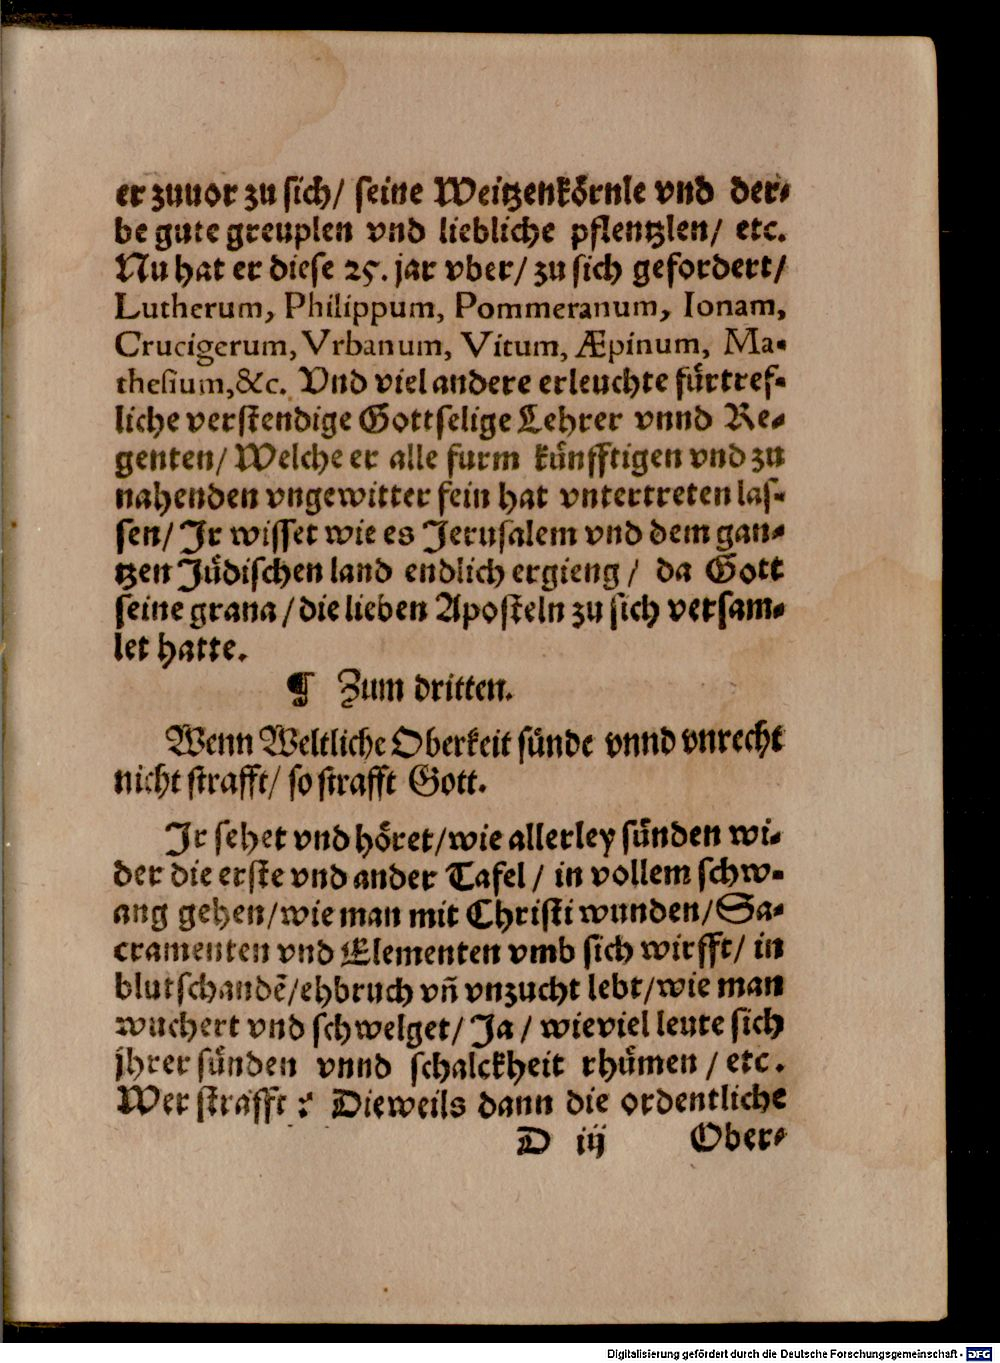 er zuuor zu sich/ seine Weitzenkoͤrnle vnd der⸗
be gute greuplen vnd liebliche pflentzlen/ etc.
Nu hat er diese 25. jar vber/ zu sich gefordert/
Lutherum, Philippum, Pommeranum, Ionam,
Crucigerum, Vrbanum, Vitum, Æpinum, Ma⸗
thesium, &c. Vnd viel andere erleuchte fuͤrtref⸗
liche verstendige Gottselige Lehrer vnnd Re⸗
genten/ Welche er alle furm kuͤnfftigen vnd zu
nahenden vngewitter fein hat vntertreten las⸗
sen/ Jr wisset wie es Jerusalem vnd dem gan⸗
tzen Juͤdischen land endlich ergieng/ da Gott
seine grana/ die lieben Aposteln zu sich versam⸗
let hatte.
¶ Zum dritten.
Wenn Weltliche Oberkeit suͤnde vnnd vnrecht
nicht strafft/ so strafft Gott.
Jr sehet vnd hoͤret/ wie allerley suͤnden wi⸗
der die erste vnd ander Tafel/ in vollem schw⸗
ang gehen/ wie man mit Christi wunden/ Sa⸗
cramenten vnd Elementen vmb sich wirfft/ in
blutschandẽ/ ehbruch vñ vnzucht lebt/ wie man
wuchert vnd schwelget/ Ja/ wieviel leute sich
jhrer suͤnden vnnd schalckheit rhuͤmen/ etc.
Wer strafft? Dieweils dann die ordentliche
D iij Ober⸗
Digitalisierung gefördert durch die Deutsche Forschungsgemeinschaft - DFG